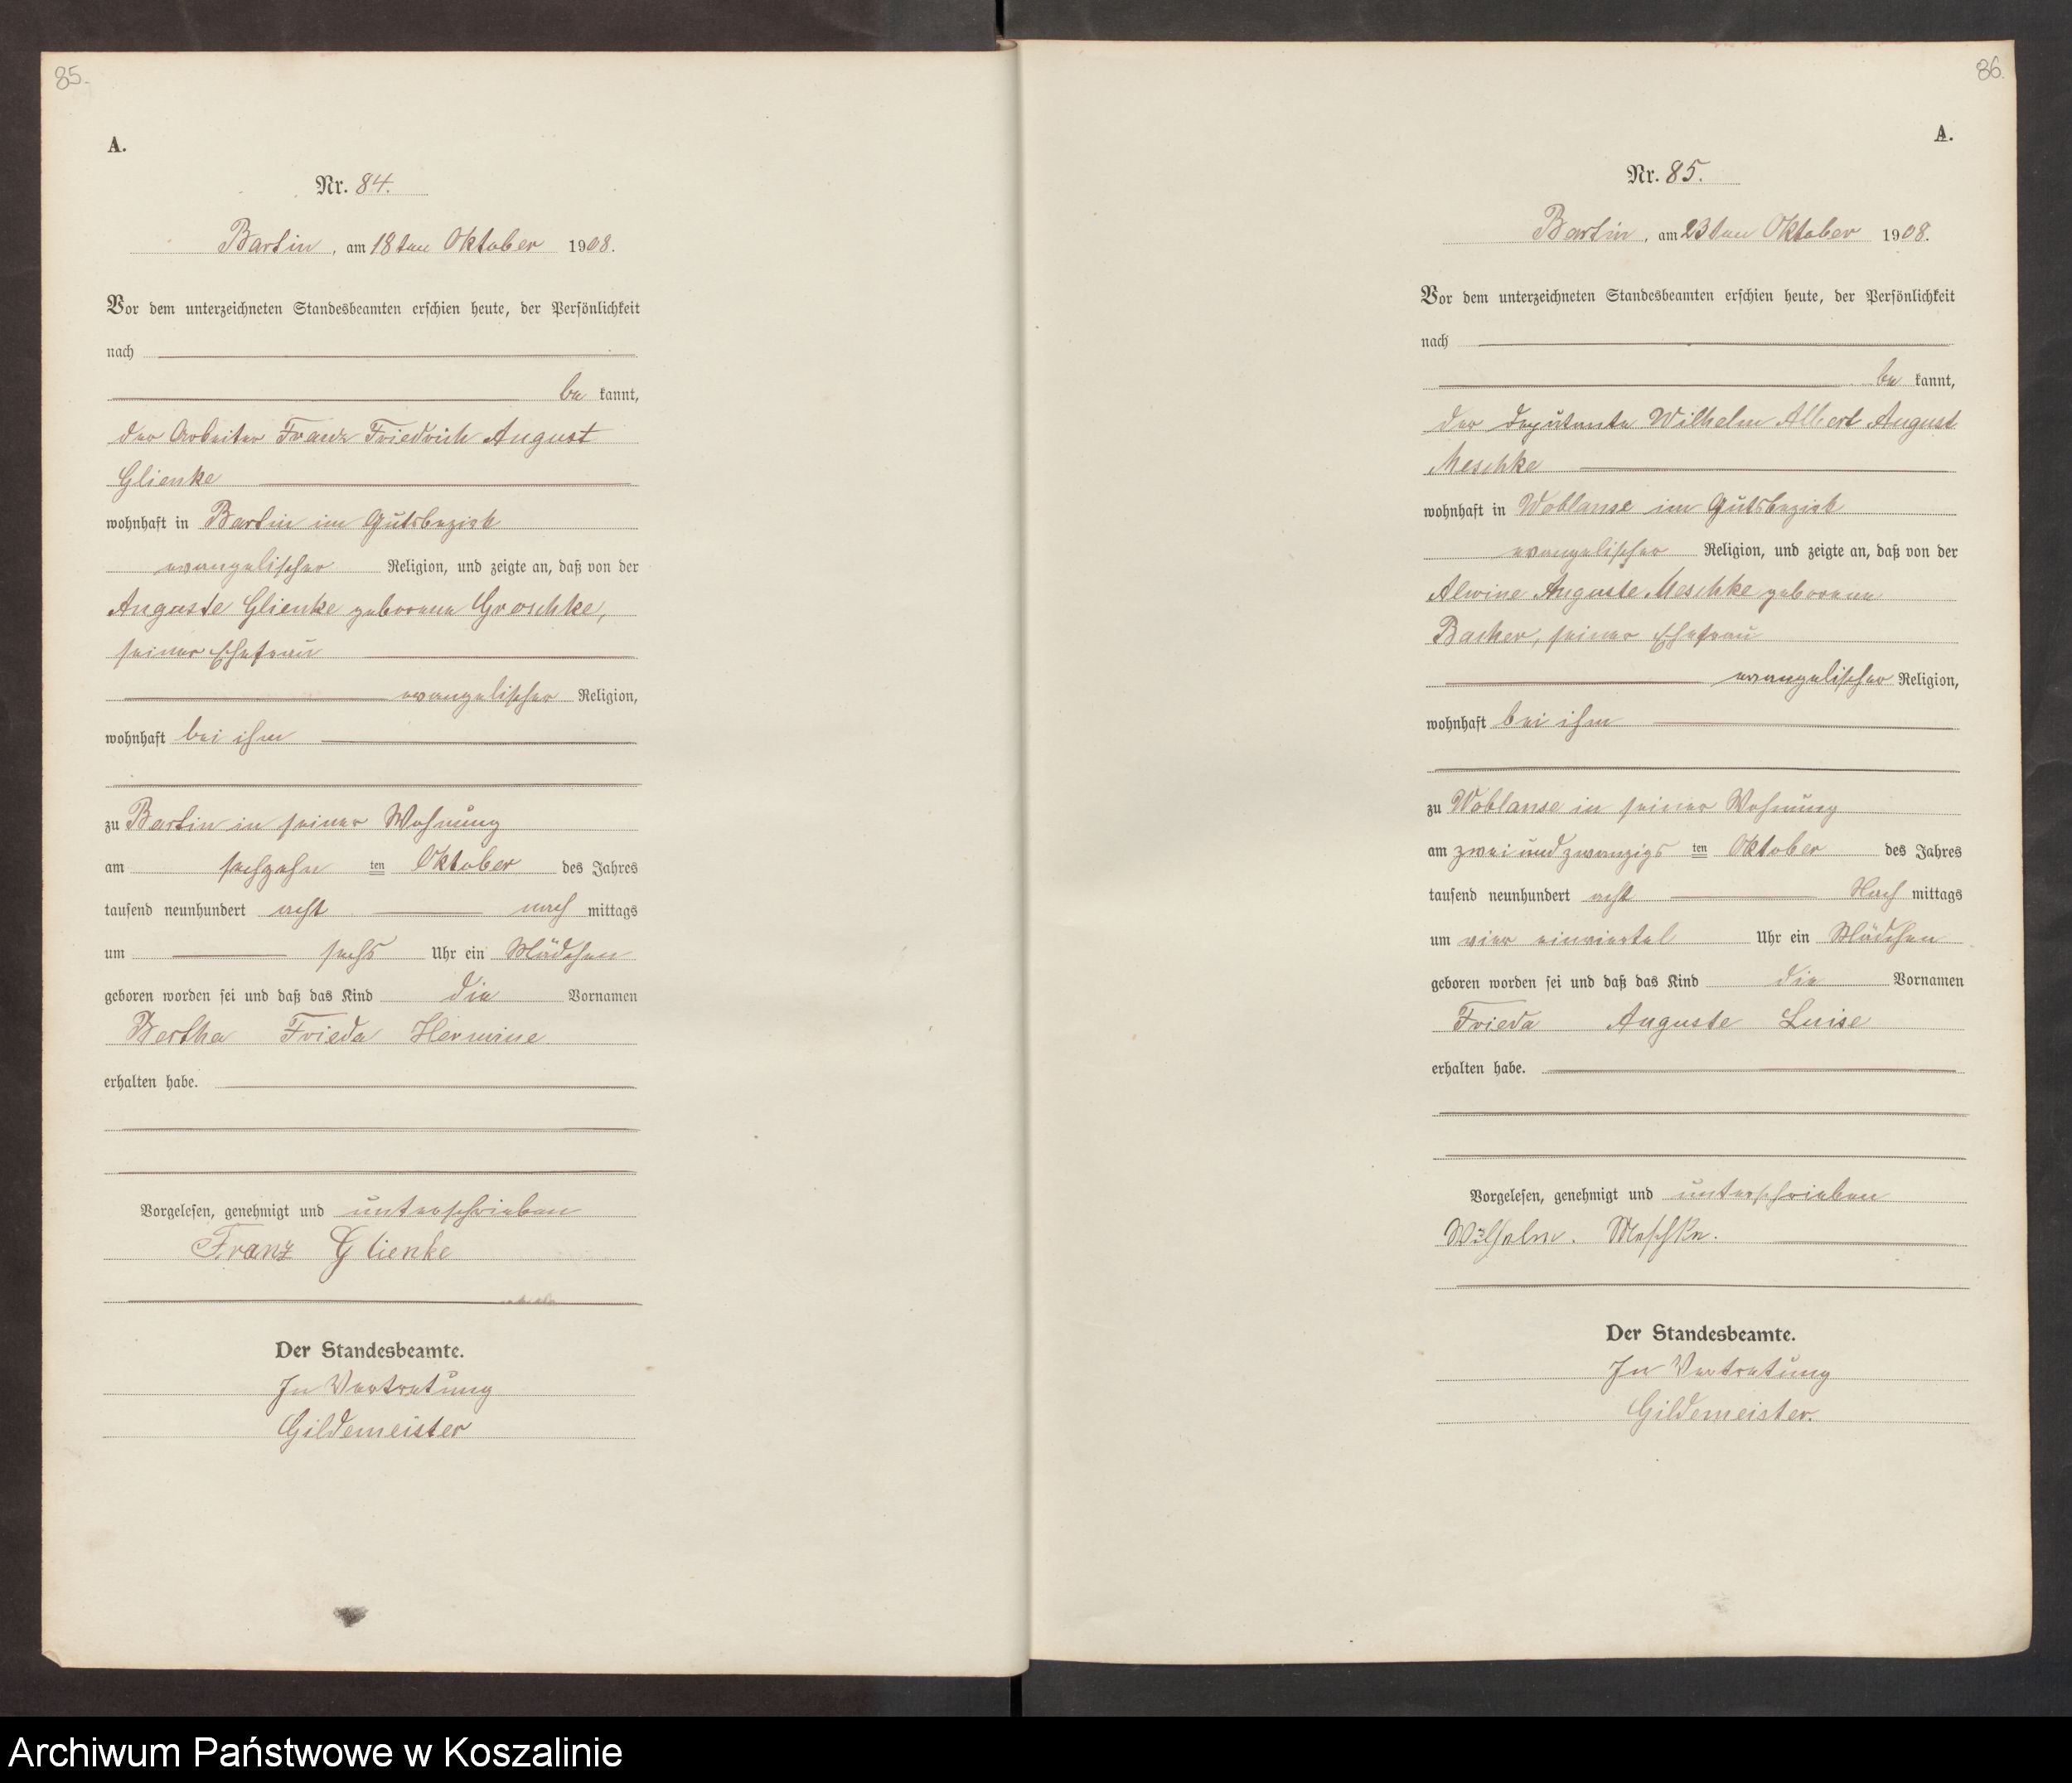 85.
A.
Nr. 84.
Bartin, am 18ten Oktober 1908.
Vor dem unterzeichneten Standesbeamten erschien heute, der Persönlichkeit
nach
be kannt,
der Arbeiter Franz Friedrich August
Glienke
wohnhaft in Bartin im Gutsbezirk
evangelischer Religion, und zeigte an, daß von der
Auguste Glienke geborene Groschke,
seiner Ehefrau
evangelischer Religion,
wohnhaft bei ihm
zu Bartin in seiner Wohnung
am sechzehn ten Oktober des Jahres
tausend neunhundert acht nach mittags
um sechs Uhr ein Mädchen
geboren worden sei und daß das Kind die Vornamen
Bertha Frieda Hermine
erhalten habe.
Vorgelesen, genehmigt und unterschrieben
Franz Glienke
Der Standesbeamte.
In Vertretung
Gildemeister
86.
A.
Nr. 85.
Bartin, am 23ten Oktober 1908.
Vor dem unterzeichneten Standesbeamten erschien heute, der Persönlichkeit
nach
be kannt,
der Deputante Wilhelm Albert August
Meschke
wohnhaft in Woblanse im Gutsbezirk
evangelischer Religion, und zeigte an, daß von der
Alwine Auguste Meschke geborene
Backer, seiner Ehefrau
evangelischer Religion,
wohnhaft bei ihm
zu Woblanse in seiner Wohnung
am zwei und zwanzigs ten Oktober des Jahres
tausend neunhundert acht Nach mittags
um vier einviertel Uhr ein Mädchen
geboren worden sei und daß das Kind die Vornamen
Frieda Auguste Luise
erhalten habe.
Vorgelesen, genehmigt und unterschrieben
Wilhelm. Meschke.
Der Standesbeamte.
In Vertretung
Gildemeister.
Archiwum Państwowe w Koszalinie